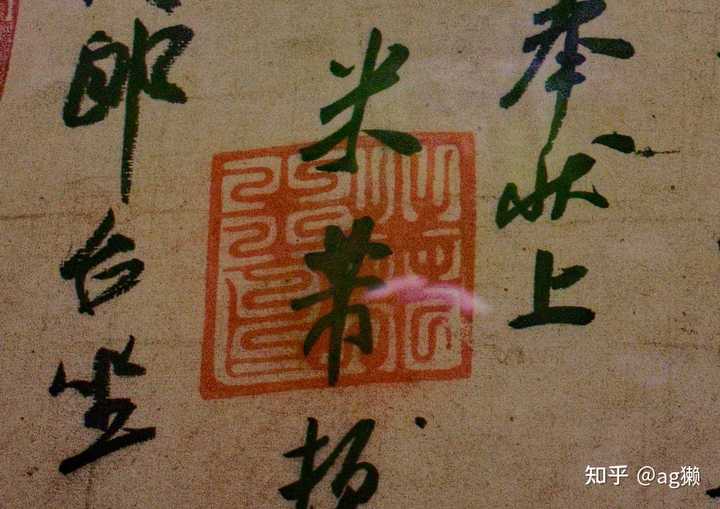 奉状上
米芾顿
郎台坐
知乎 @ag獭